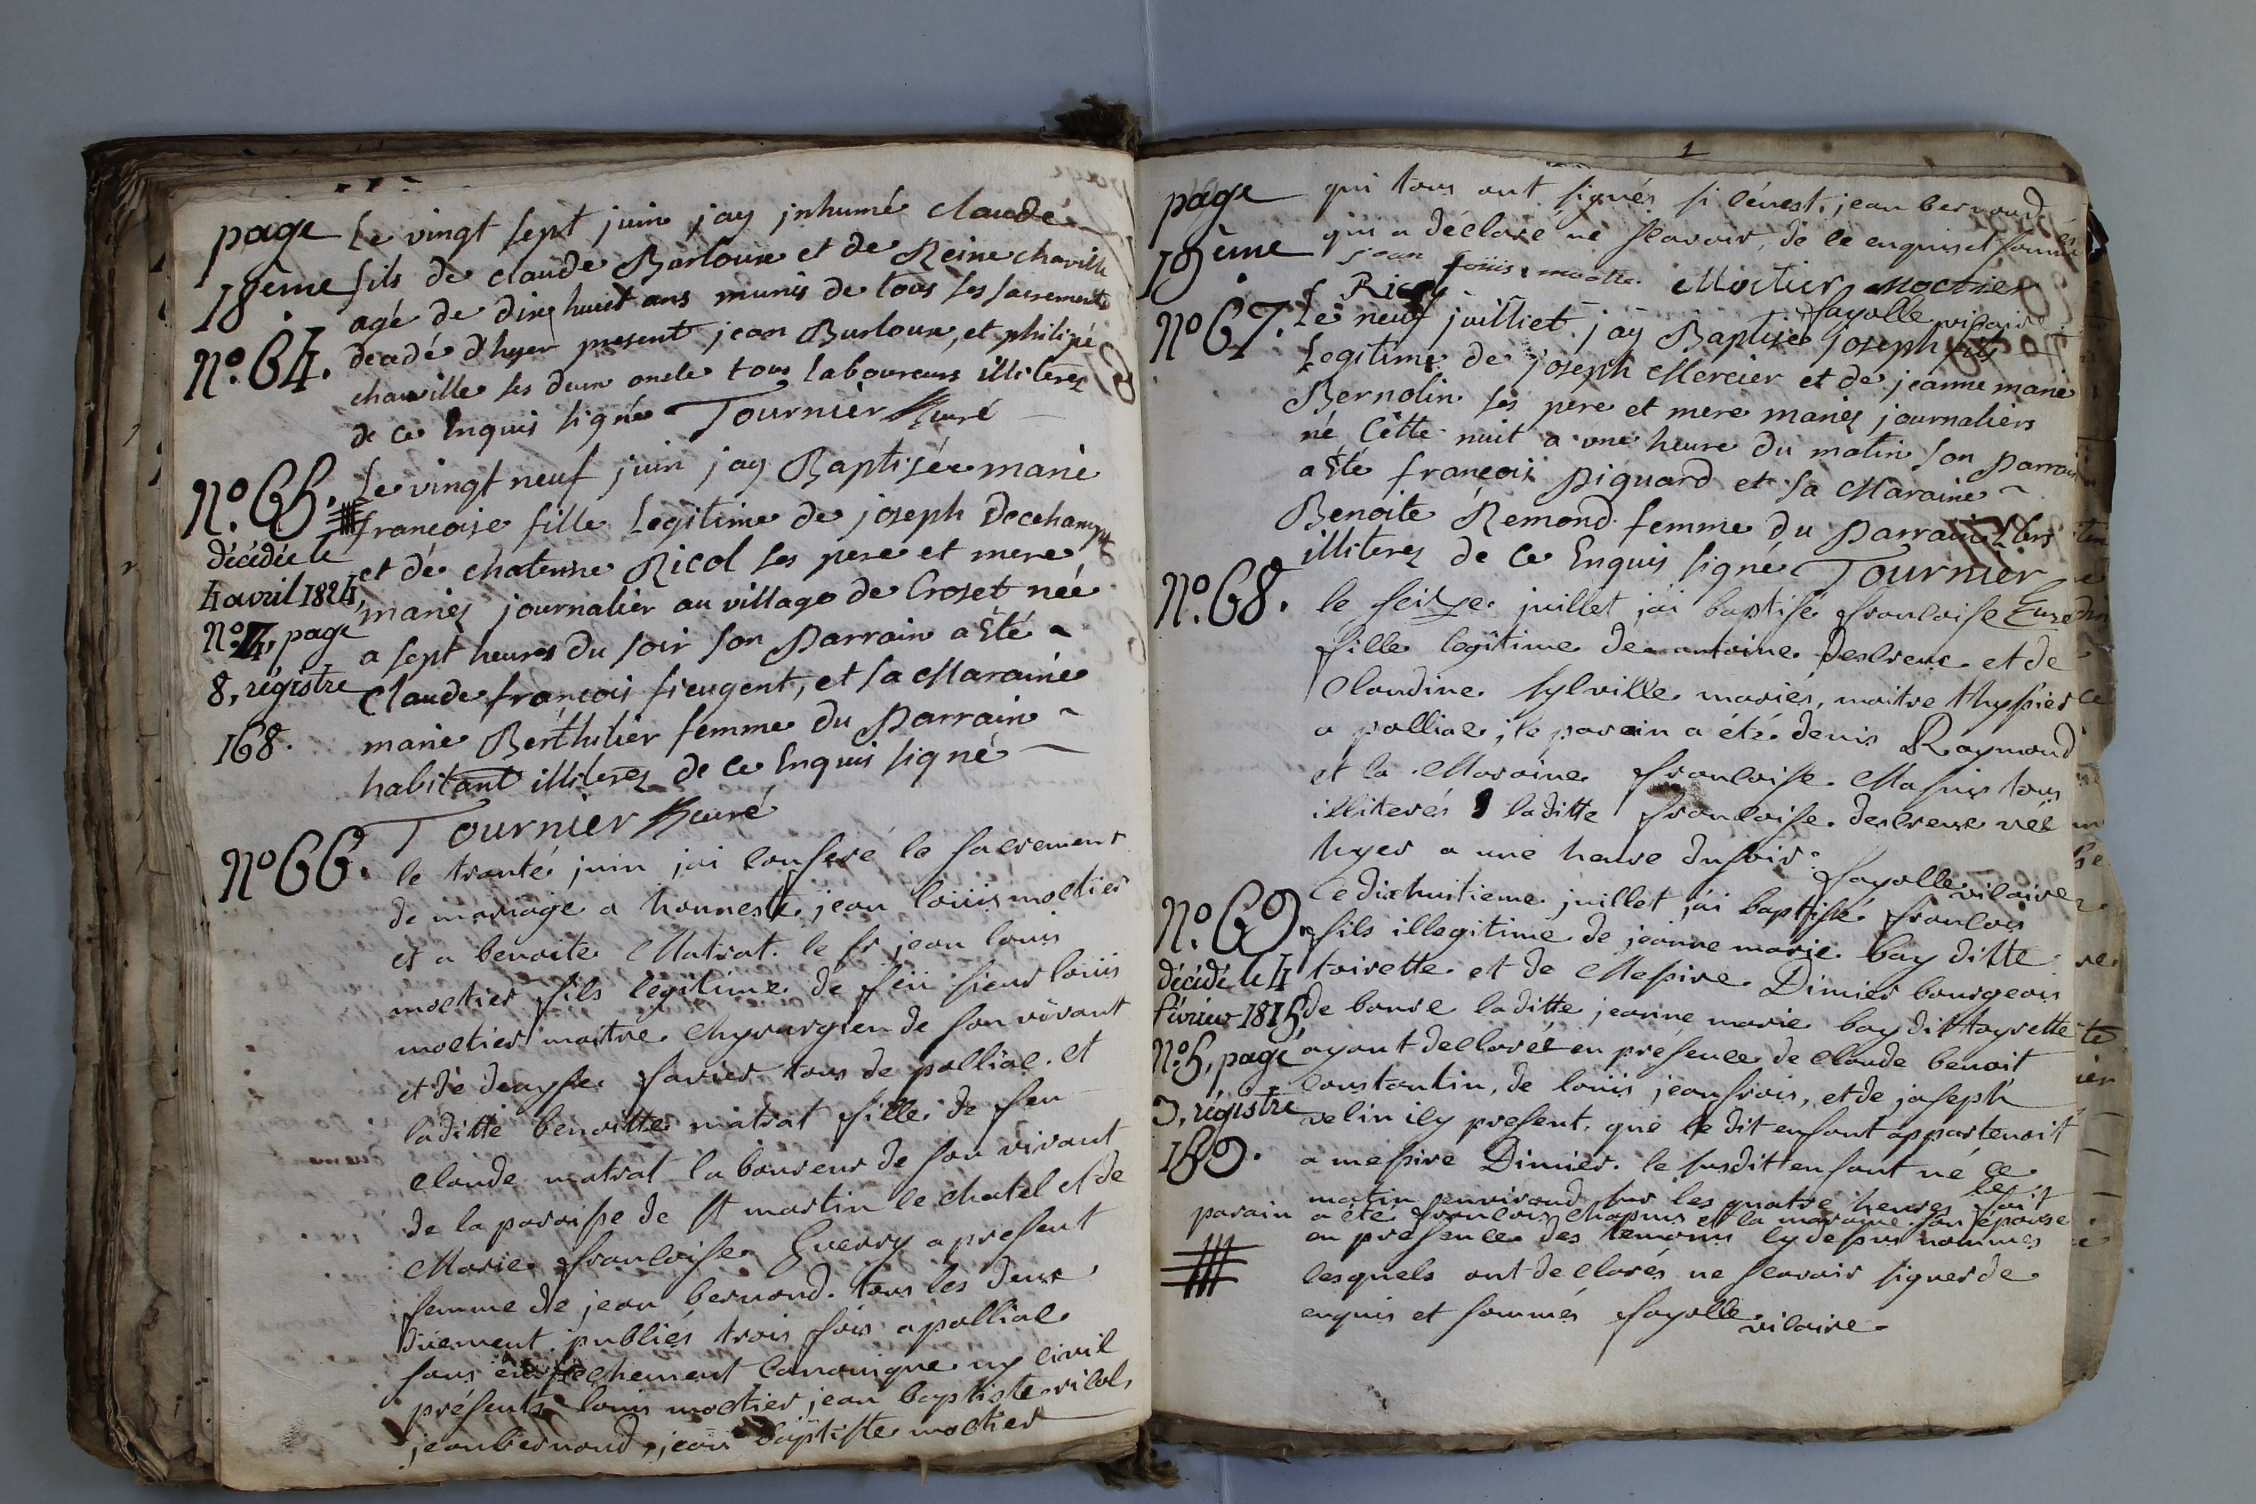 page
18ème
Nº. 64.
Le vingt sept juin jay jnhumé claude
fils de claude Burloux et de Reine chaville
agé de dix huit ans munis de tous les sacrements
decadé d'hyer present jean Burloux, et philipé
chauville ses deux oncle tous laboureurs illiterez
de ce Enquis signé Tournier Curé
Nº. 65.
décédée le
4 avril 1824,
Nº. 14, page
8, régistre
168.
Le vingt neuf juin jay Baptisée marie
francoise fille Legitime de joseph Decchamps
et dé chaterine Ricol ses pere et mere
mariez journalier au village de Croset née
a sept heures du soir son Parrain a Eté
Claude françois fieugent, et sa Maraine
marie Berthilier femme du Parrain
habitant illiterez de ce Enquis signé
Tournier Curé
Nº 66.
le tranté juin jai conferé le sacrement
de mariage a honneste jean loüis moctier
et a benoite Matrat. le sr jean louis
moctier fils legitime de feü sieur loüis
moctier maitre chyrurgien de son vivant
et dé denyse favier tous de polliac. et
laditte benoitte matrat fille de feu
claude matrat laboureur de son vivant
de la paroisse de St martin le chatel et de
Marie francoise Guerry a present
femme de jean bernond. tous les deux
düement publiés trois fois a polliac
sans empechement canonique ny civil
présents louis moctier jean baptiste ricol
jean bernond, jean baptiste moctier
page
19ème
qui tous ont signés si cénest jean bernond
qui a déclaré ne scavoir, de ce enquis et sommé
jean loüis moctier Moctier moctier
Ricol fayolle vicaire
Nº 67.
Le neuf juilliet jay Baptisé joseph fils
Legitime de joseph Mercier et de jeanne marie
Bernolin ses pere et mere mariez journaliers
né Cette nuit a une heure du matin son Parrain
a Eté françois Piguard et sa Maraine
Benoite Remond femme du Parrain
illiterez de ce Enquis signé Tournier
Curé
Nº. 68.
le seitze juillet jai baptisé francoise
fille legitime de antoine descreux et de
Claudine sylville mariés, maitre thyssier
a polliac; le parain a été denis Raymond
et la Maraine francoise Massuis tous
illiterés laditte francoise descreux née
hyer a une heure du soir. fayolle vicaire
Nº. 69.
décédé le 4
février 1815,
Nº. 5, page
3, régistre
159.
Le dixhuitieme juillet jai baptisé francois
fils illegitime de jeanne marie bay ditte
toirette et de Messire Dimier bourgeois
de bourc laditte jeanne marie bay dit tayrette
ayant declarée en presence de claude benoit
constantin, de louis jeanfrois, et de joseph
velin icy present, que le dit enfant appartenoit
a messire Dimier. le susdit enfant né ce
matin environd sur les quatre heures le
parain a été francois chapuis et la maraine son épouse
en presence des temoins cy dessus nommés
lesquels ont declarés ne scavoir signer de
enquis et sommés fayolle vicaire